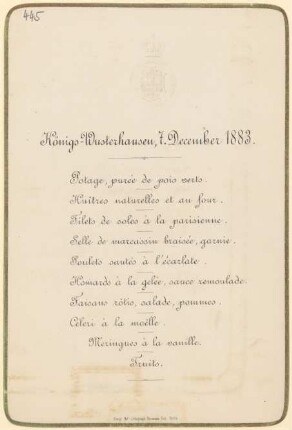 445
Königs-Wusterhausen, 7. December 1883.
Potage, purée de pois verts.
Huîtres naturelles et au four.
Filets de soles à la parisienne.
Selle de marcassin braisée, garnie.
Poulets sautés à l'écarlate.
Homards à la gelée, sauce remoulade.
Faisans rôtis, salade, pommes.
Céleri à la moëlle.
Meringues à la vanille.
Fruits.